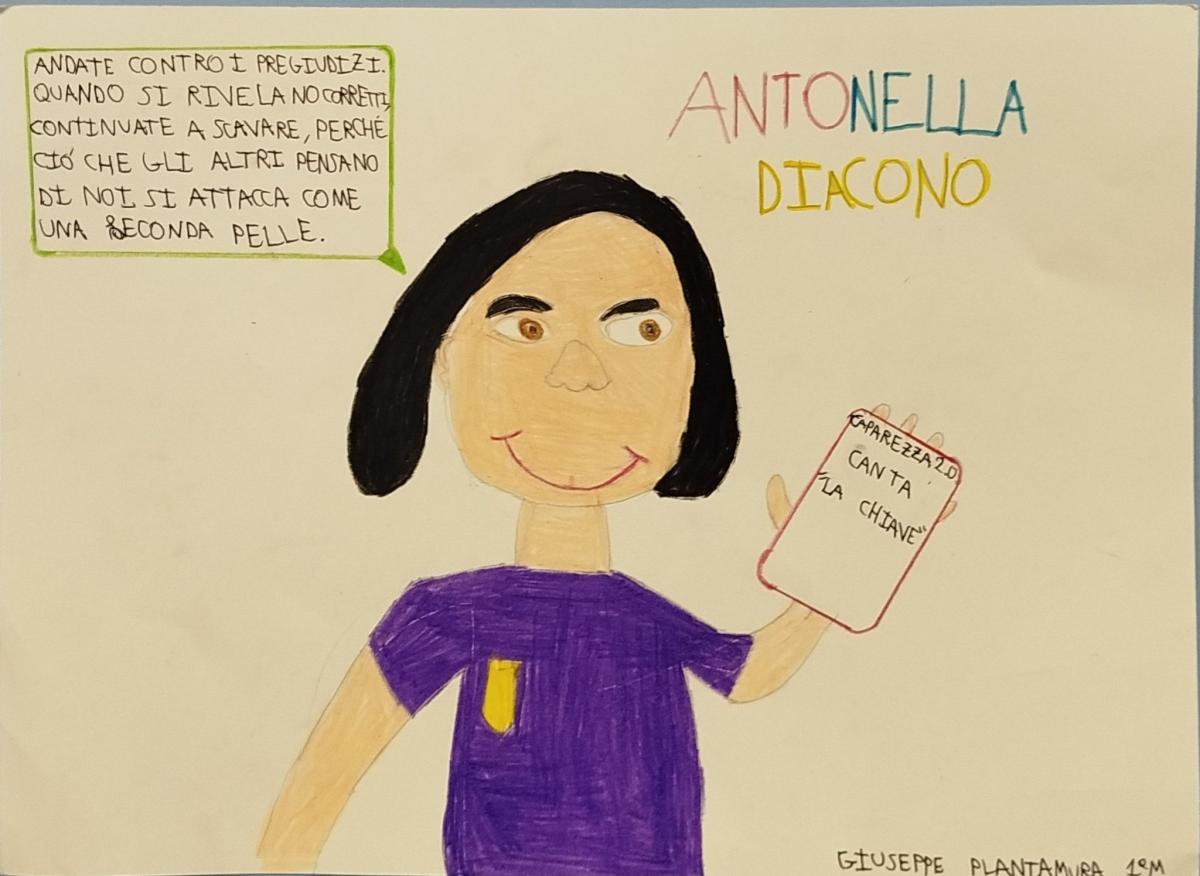 ANDATE CONTRO I PREGIUDIZI.
QUANDO SI RIVELANO CORRETTI,
CONTINUATE A SCAVARE, PERCHÉ
CIÓ CHE GLI ALTRI PENSANO
DI NOI SI ATTACCA COME
UNA SECONDA PELLE.
ANTONELLA
DIACONO
CAPAREZZA 2.0
CANTA
"LA CHIAVE"
GIUSEPPE PLANTAMURA 1°M